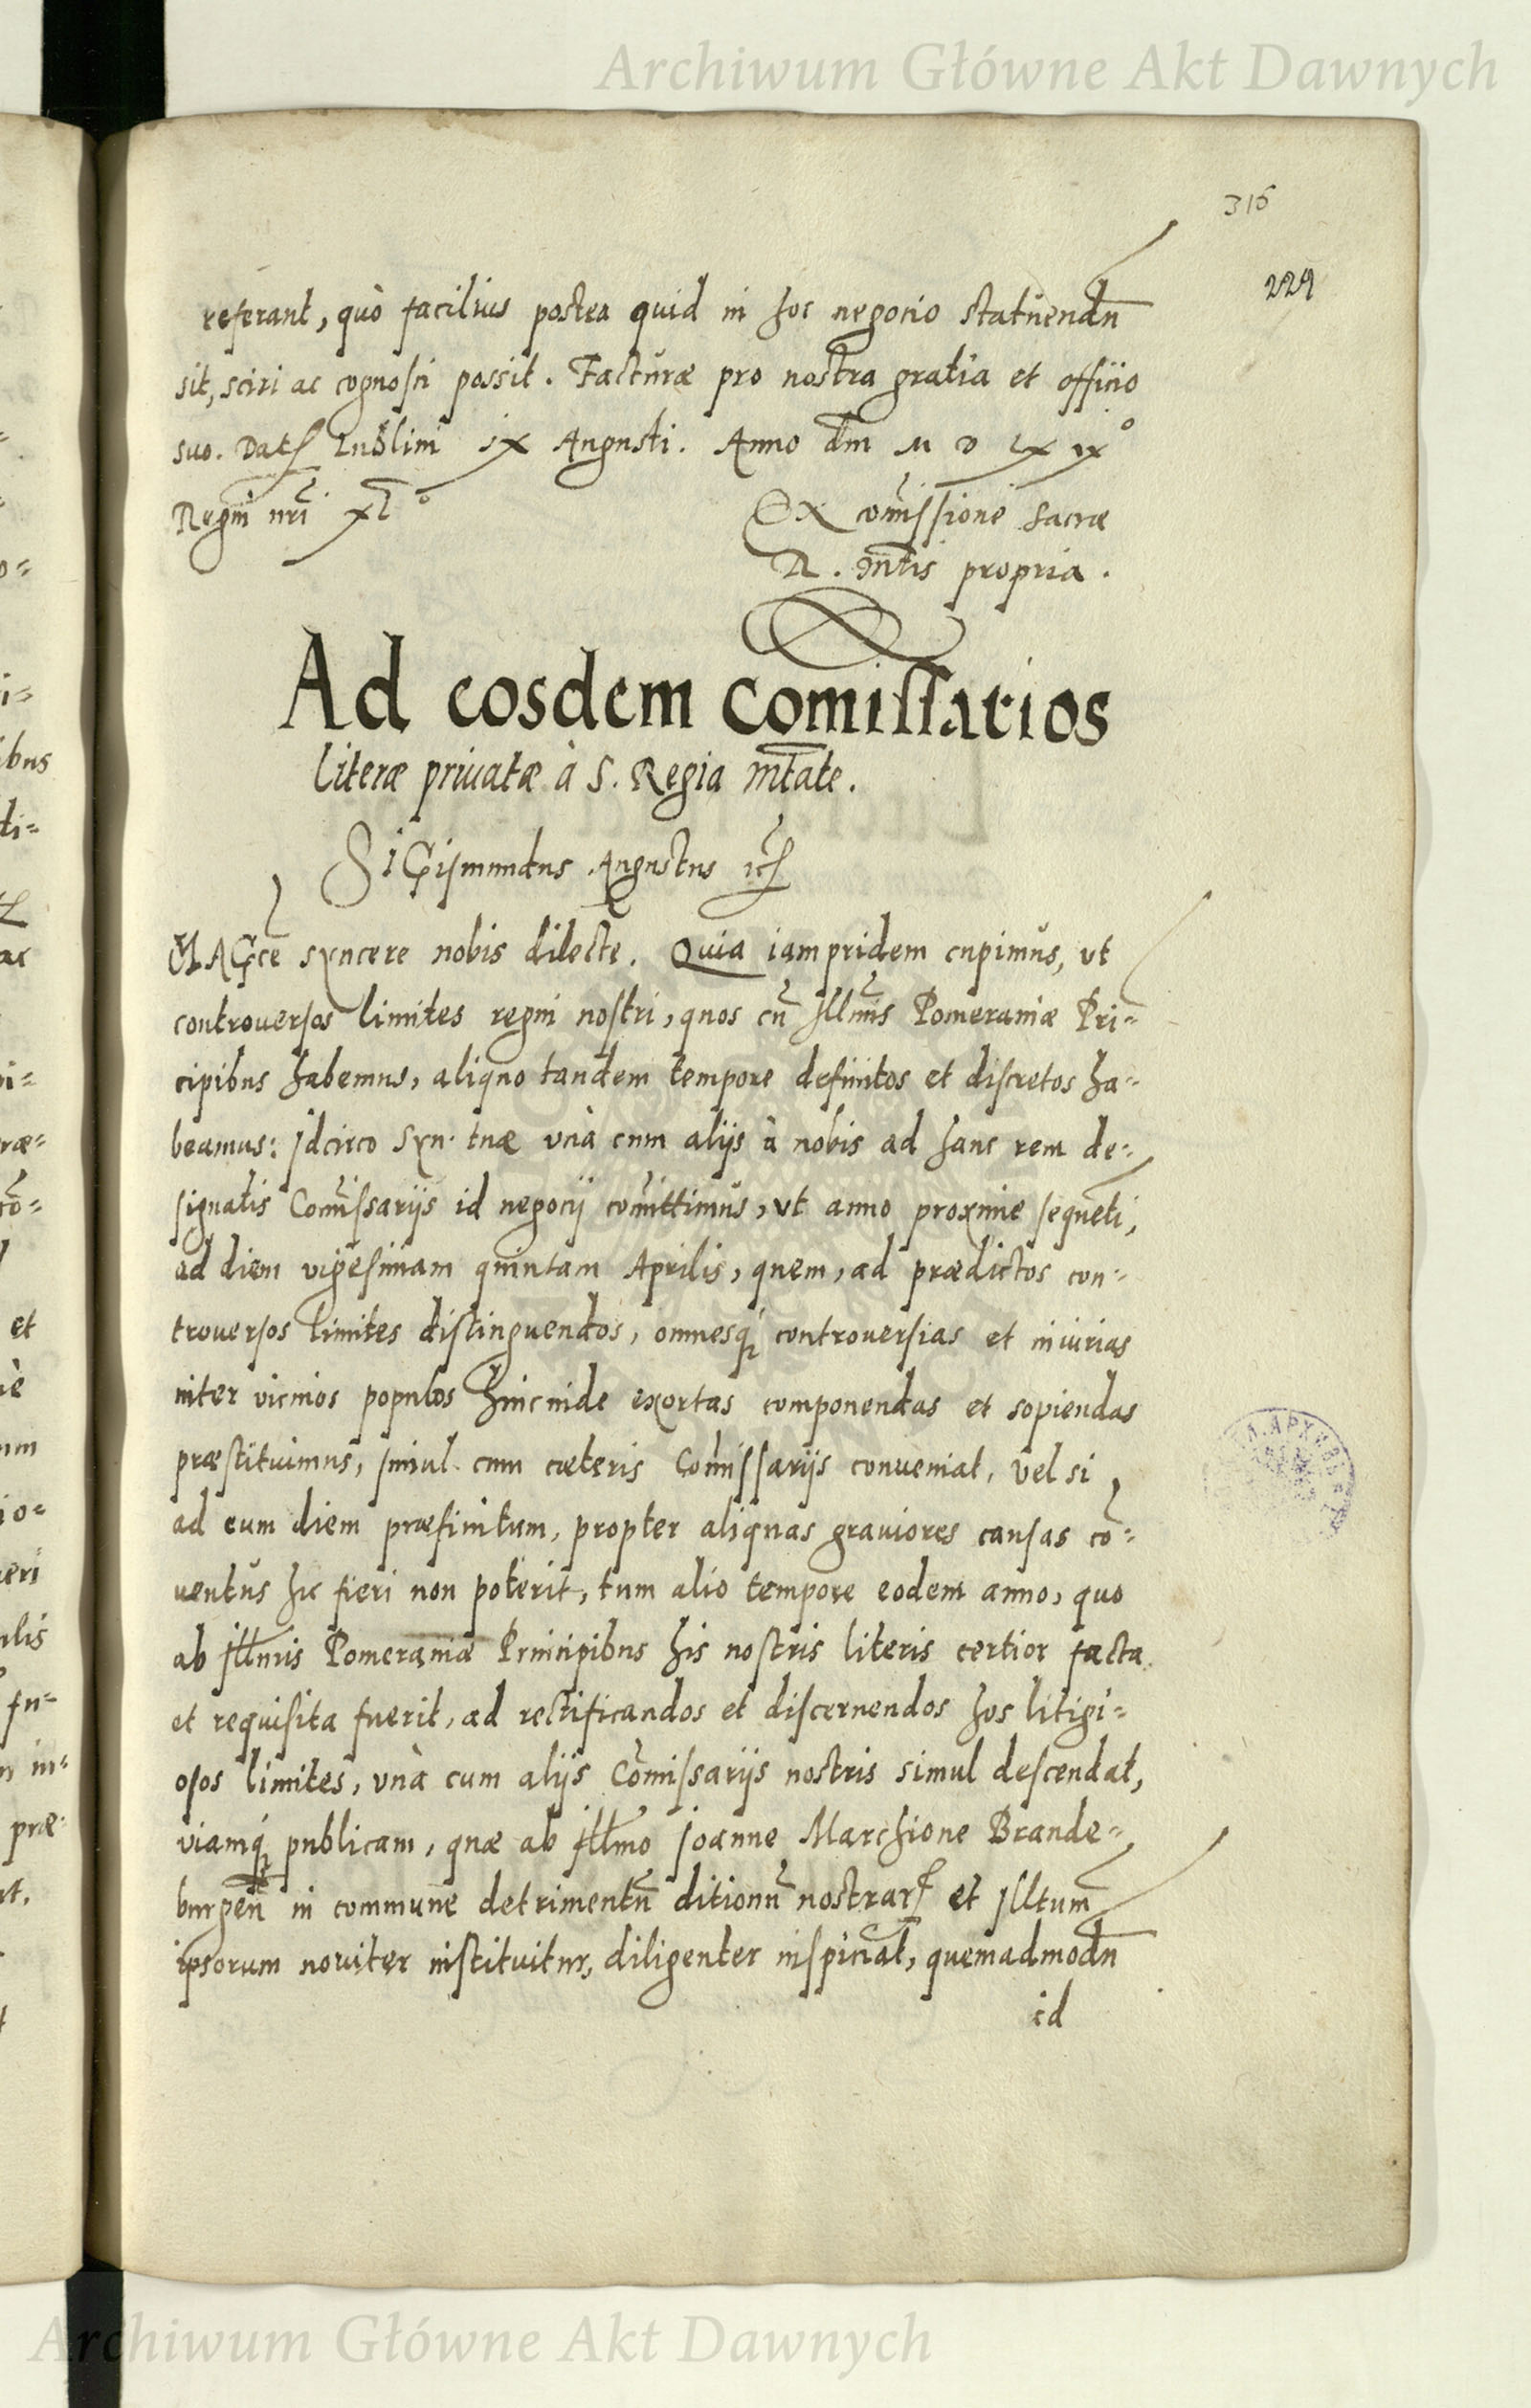 Archiwum Główne Akt Dawnych
315
229
referant, quò facilius postea quid in hoc negocio statuendū
sit, sciri ac cognosci possit. Facturæ pro nostra gratia et officio
suo. Dat Lublini ix Augusti. Anno dm M D LX ix°
Regni nri xl°
Ex comissione Sacræ
R. Mtis propria.
Ad eosdem Comissarios
literæ priuatæ à S. Regia Mtate.
SIGismundus Augustus etc
MAGce syncere nobis dilecte. Quia iampridem cupimus, vt
controuersos limites regni nostri, quos cū Illmis Pomeraniæ Pri=
cipibus habemus, aliquo tandem tempore definitos et discretos ha=
beamus: Idcirco Syn. tuæ vnà cum alijs à nobis ad hanc rem de=
signatis Comissarijs id negocij comittimus, vt anno proxime sequēti,
ad diem vigesimam quintam Aprilis, quem, ad prædictos con=
trouersos limites distinguendos, omnesq; controuersias et iniurias
inter vicinos populos hincinde exortas componendas et sopiendas
præstituimus, simul cum cæteris Comissarijs conueniat, vel si
ad eum diem præfinitum, propter aliquas grauiores causas cō=
uentus hic fieri non poterit, tum alio tempore eodem anno, quo
ab Illmis Pomeraniæ Principibus his nostris literis certior facta
et requisita fuerit, ad rectificandos et discernendos hos litigi=
osos limites, vnà cum alijs Comissarijs nostris simul descendat,
viamq; publicam, quæ ab Illmo Joanne Marchione Brande=
burgeñ in commune detrimentū ditionū nostrar et Illtum
ipsorum nouiter instituitur, diligenter inspiciat, quemadmodū
id
Archiwum Główne Akt Dawnych